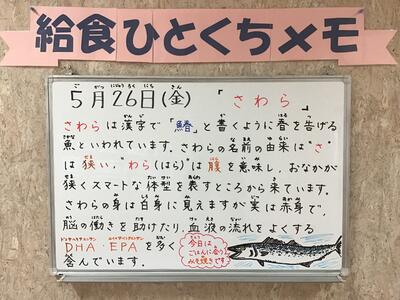 給食ひとくちメモ
5月26日(金)　「さわら」
さわらは漢字で「鰆」と書くように春を告げる
魚といわれています。さわらの名前の由来は"さ"
は狭い、"わら(はら)"は腹を意味し、おなかが
狭くスマートな体型を表すところから来ています。
さわらの身は白身に見えますが実は赤身で、
脳の働きを助けたり、血液の流れをよくする
DHA・EPAを多く
含んでいます。
今日は
ごはんに合う
みそ焼きです